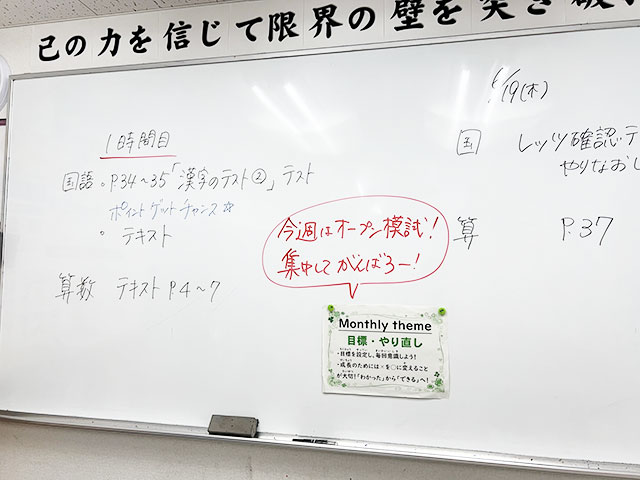 己の力を信じて限界の壁を突き破
1時間目
国語 ・P.34～35「漢字のテスト②」テスト
ポイントゲットチャンス☆
・ テキスト
算数 テキスト P.4～7
今週はオープン模試!
集中してがんばろー!
Monthly theme
目標・やり直し
・目標を設定し、毎回意識しよう!
・成長のためには×を○に変えること
が大切!「わかった」から「できる」へ!
/19(木)
国 レッツ確認・テ
やりなおし
算 P.37